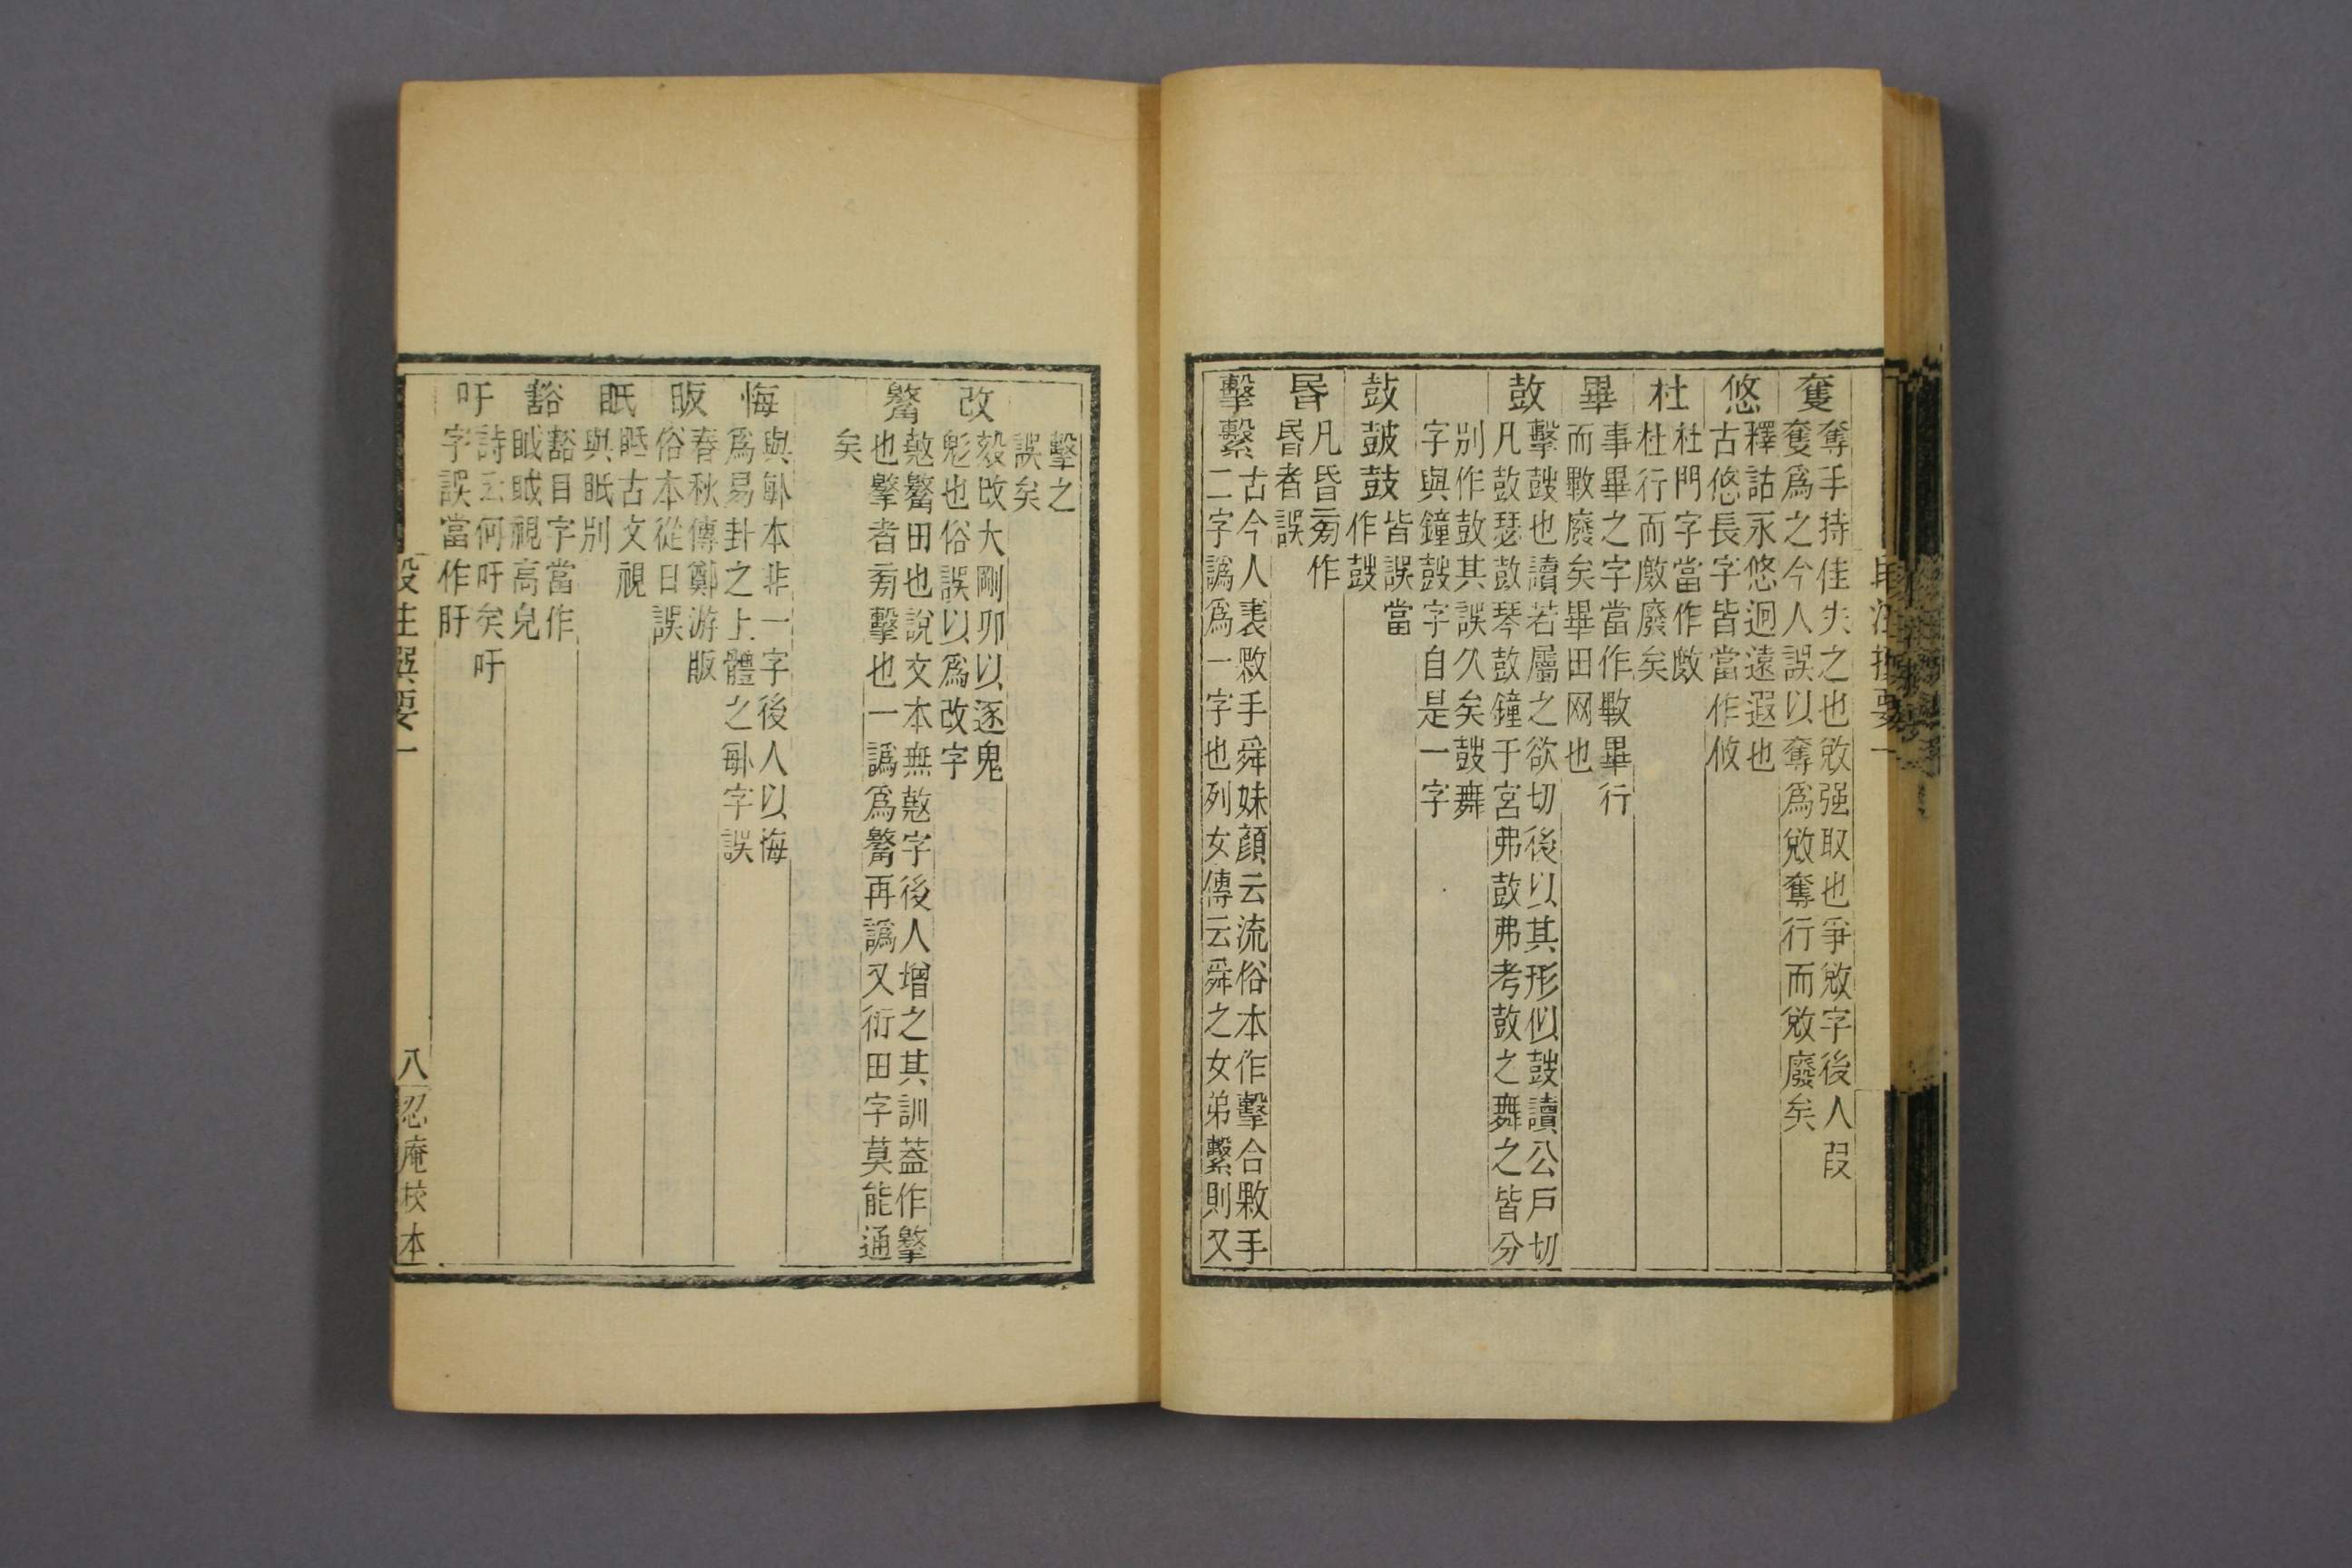 奪
奪手持隹失之也敓强取也爭敓字後人叚
奪爲之今人誤以奪爲敓奪行而敓廢矣
悠
釋詁永悠迥遠遐也
古悠長字皆當作攸
杜
杜門字當作𢾖
杜行而𢾖廢矣
畢
事畢之字當作㪤畢行
而㪤廢矣畢田网也
鼔
擊鼓也讀若屬之欲切後以其形似鼓讀公戶切
凡鼔瑟鼔琴鼔鐘于宮弗鼔弗考鼔之舞之皆分
別作鼓其誤久矣鼓舞
字與鐘鼓字自是一字
鼔皷鼓
皆誤當
作鼓
昬
凡昏㫄作
昬者誤
擊繫
古今人表敤手舜妹顏云流俗本作擊合敤手
二字譌爲一字也列女傳云舜之女弟繫則又
擊之
誤矣
改
毅改大剛卯以逐鬼
鬽也俗誤以爲改字
田也說文本無字後人增之其訓葢作
也者㫄擊也一譌爲再譌又衍田字莫能通
矣
悔
與𠧩本非一字後人以悔
爲易卦之上體之𠧩字誤
眅
春秋傳鄭游眅
俗本從日誤
眡
眡古文視
與眂別
豁
豁目字當作
眓眓視高皃
吁
詩云何吁矣吁
字誤當作盱
段注撰要一
八
忍庵校本